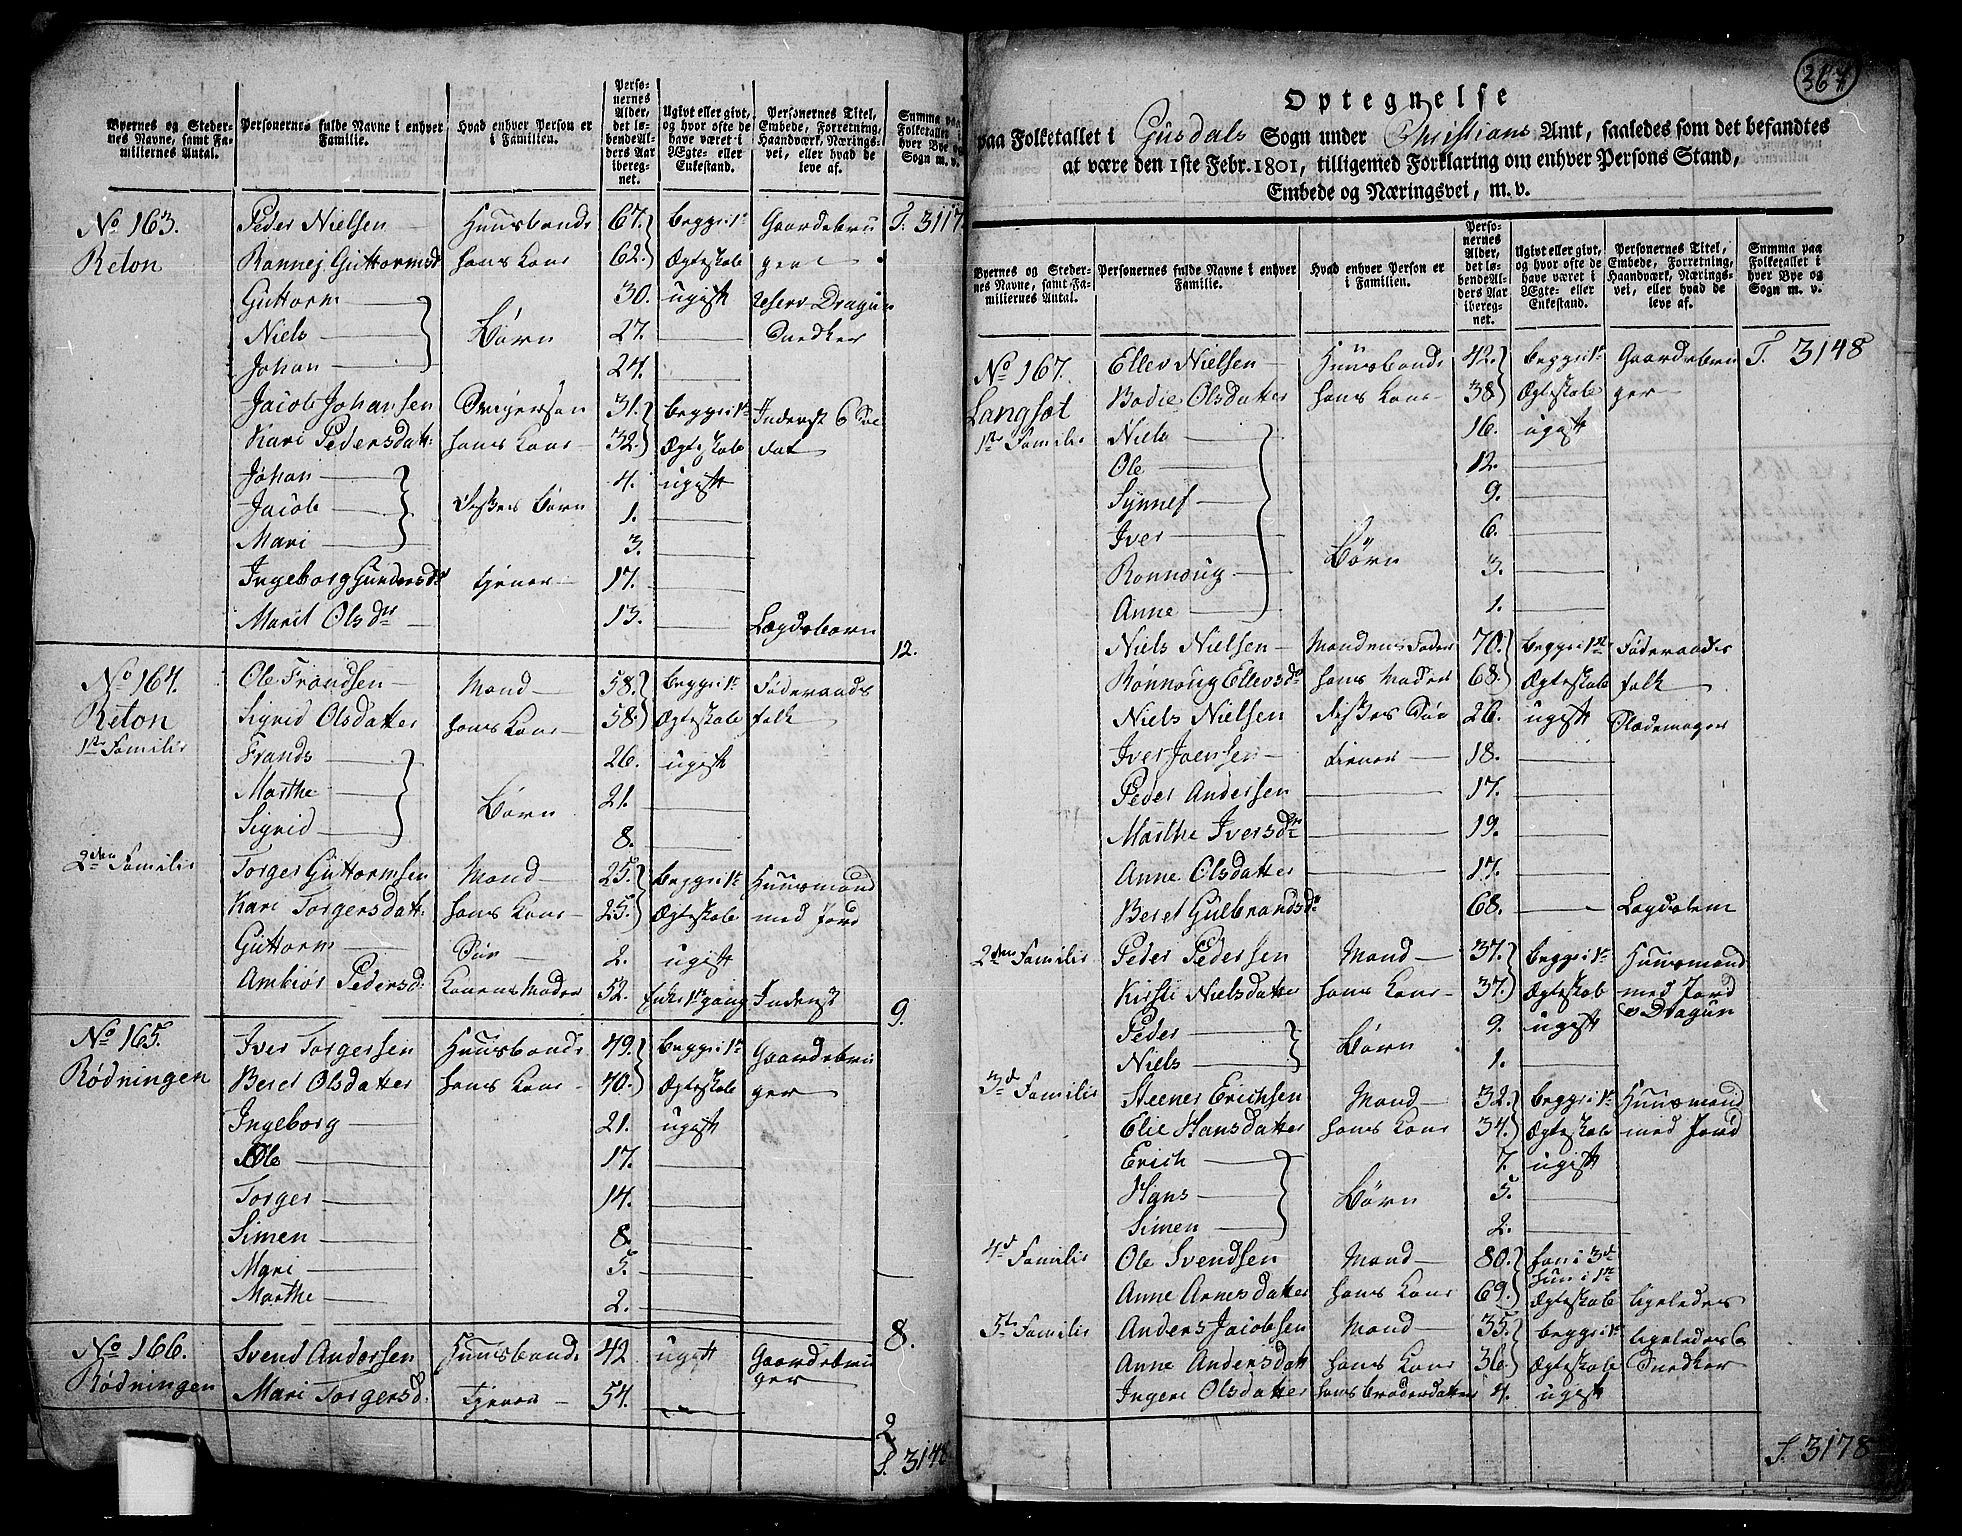 Byernes og Steder-
nes Navne, samt Fa-
miliernes Antal.
Personernes fulde Navne i enhver
Familie.
Hvad enhver Person er
i Familien.
Perso-
nernes
Alder,
det lø-
bende Al-
ders Aar
iberreg-
net.
Ugivt eller givt,
og hvor ofte de
have været i
Ægte- eller
Enkestand.
Personernes Titel,
Embede, Forretning,
Haandværk, Nærings-
vei, eller hvad de
leve af.
Summa paa
Folketallet i
hver Bye og
Sogn m. v.
No 163. Peder Nielsen Huusbonde 67. begge i 1te Gaardebru T. 3117
Reton Rannej Guttormsd hans Kone 62. Ægteskab ger
Guttorm 30. ugift reserv Dragun
Niels Børn 27. Snedker
Johan 24.
Jacob Johansen Svigersøn 31. begge i 1te Inderst Sol
Kari Pedersdatt: hans Kone 32. Ægteskab dat
Johan 4. ugift
Jacob Disses Børn 1.
Mari 3.
Ingeborg Gundersdr tjener 17.
Marit Olsdr 13. Lægdsbarn
12.
No 164. Ole Frandsen Mand 58. begge i 1te Føderaads
Reton Sigrid Olsdatter hans Kone 58. Ægteskab folk
1te Familie Frands 26. ugift
Marthe Børn 21.
Sigrid 8.
2den Familie Torger Guttormsen Mand 25. begge i 1te Huusmand
Kari Torgersdatt: hans Kone 25. Ægteskab med Jord
Guttorm Søn 2. ugift
Ambiør Pedersd: Konens Moder 52. Enke 1te gang Inderst
9.
No 165. Iver Torgersen Huusbonde 49. begge i 1te Gaardebru
Rødningen Beret Olsdatter hans Kone 40. Ægteskab ger
Ingeborg 21. ugift
Ole 17.
Torger 14.
Simen 8.
Mari 5.
Marthe 2.
8.
No 166. Svend Andersen Huusbonde 42 ugift Gaardebru
Rødningen Mari Torgersd: Tjener 54. ger
2
S. 3148
367
Optegnelse
paa Folketallet i Gusdals Sogn under Christians Amt, saaledes som det befandtes
at være den 1ste Febr. 1801, tilligemed Forklaring om enhver Persons Stand,
Embede og Næringsvei, m. v.
Byernes og Steder-
nes Navne, samt Fa-
miliernes Antal.
Personernes fulde Navne i enhver
Familie.
Hvad enhver Person er
i Familien.
Perso-
nernes
Alder,
det lø-
bende Al-
ders Aar
iberreg-
net.
Ugivt eller givt,
og hvor ofte de
have været i
Ægte- eller
Enkestand.
Personernes Titel,
Embede, Forretning,
Haandværk, Nærings-
vei, eller hvad de
leve af.
Summa paa
Folketallet i
hver Bye og
Sogn m. v.
No 167. Ellev Nielsen Huusbonde 42. begge i 1te Gaardebru T. 3148
Langsæt Bodie Olsdatter hans Kone 38 Ægteskab ger
1te Familie Niels 16. ugift
Ole 12.
Synnef 9.
Iver Børn 6.
Ronnoug 3.
Anne 1.
Niels Nielsen Mandens Fader 70. begge i 1te Føderaads
Rønnoug Ellevsdr hans Moder 68. Ægteskab folk
Niels Nielsen disses Søn 26. ugift Slædemager
Iver Joensen tiener 18.
Peder Andersen 17.
Marthe Iversdr 19.
Anne Olsdatter 17.
Beret Gulbrandsdr 68. Lægdslem
2den Familie Peder Pedersen Mand 37. begge i 1te Huusmand
Kirsti Nielsdatter hans Kone 37. Ægteskab med Jord
Peder Børn 9. ugift Dragun
Niels 1.
3d Familie Steener Erichsen Mand 32. begge i 1te Huusmand
Elie Hansdatter hans Kone 34. Ægteskab med Jord
Erich 7. ugift
Hans Børn 5.
Simen 2.
4d Familie Ole Svendsen Mand 80. han i 3d
hun i 1te
Anne Arnesdatter hans Kone 69. Ægteskab ligeledes
5te Familie Anders Jacobsen Mand 35. begge i 1te ligeledes
Anne Andersdatt hans Kone 36. Ægteskab Snedker
Ingeri Olsdatter hans broderdatter 4. ugift
S. 3178